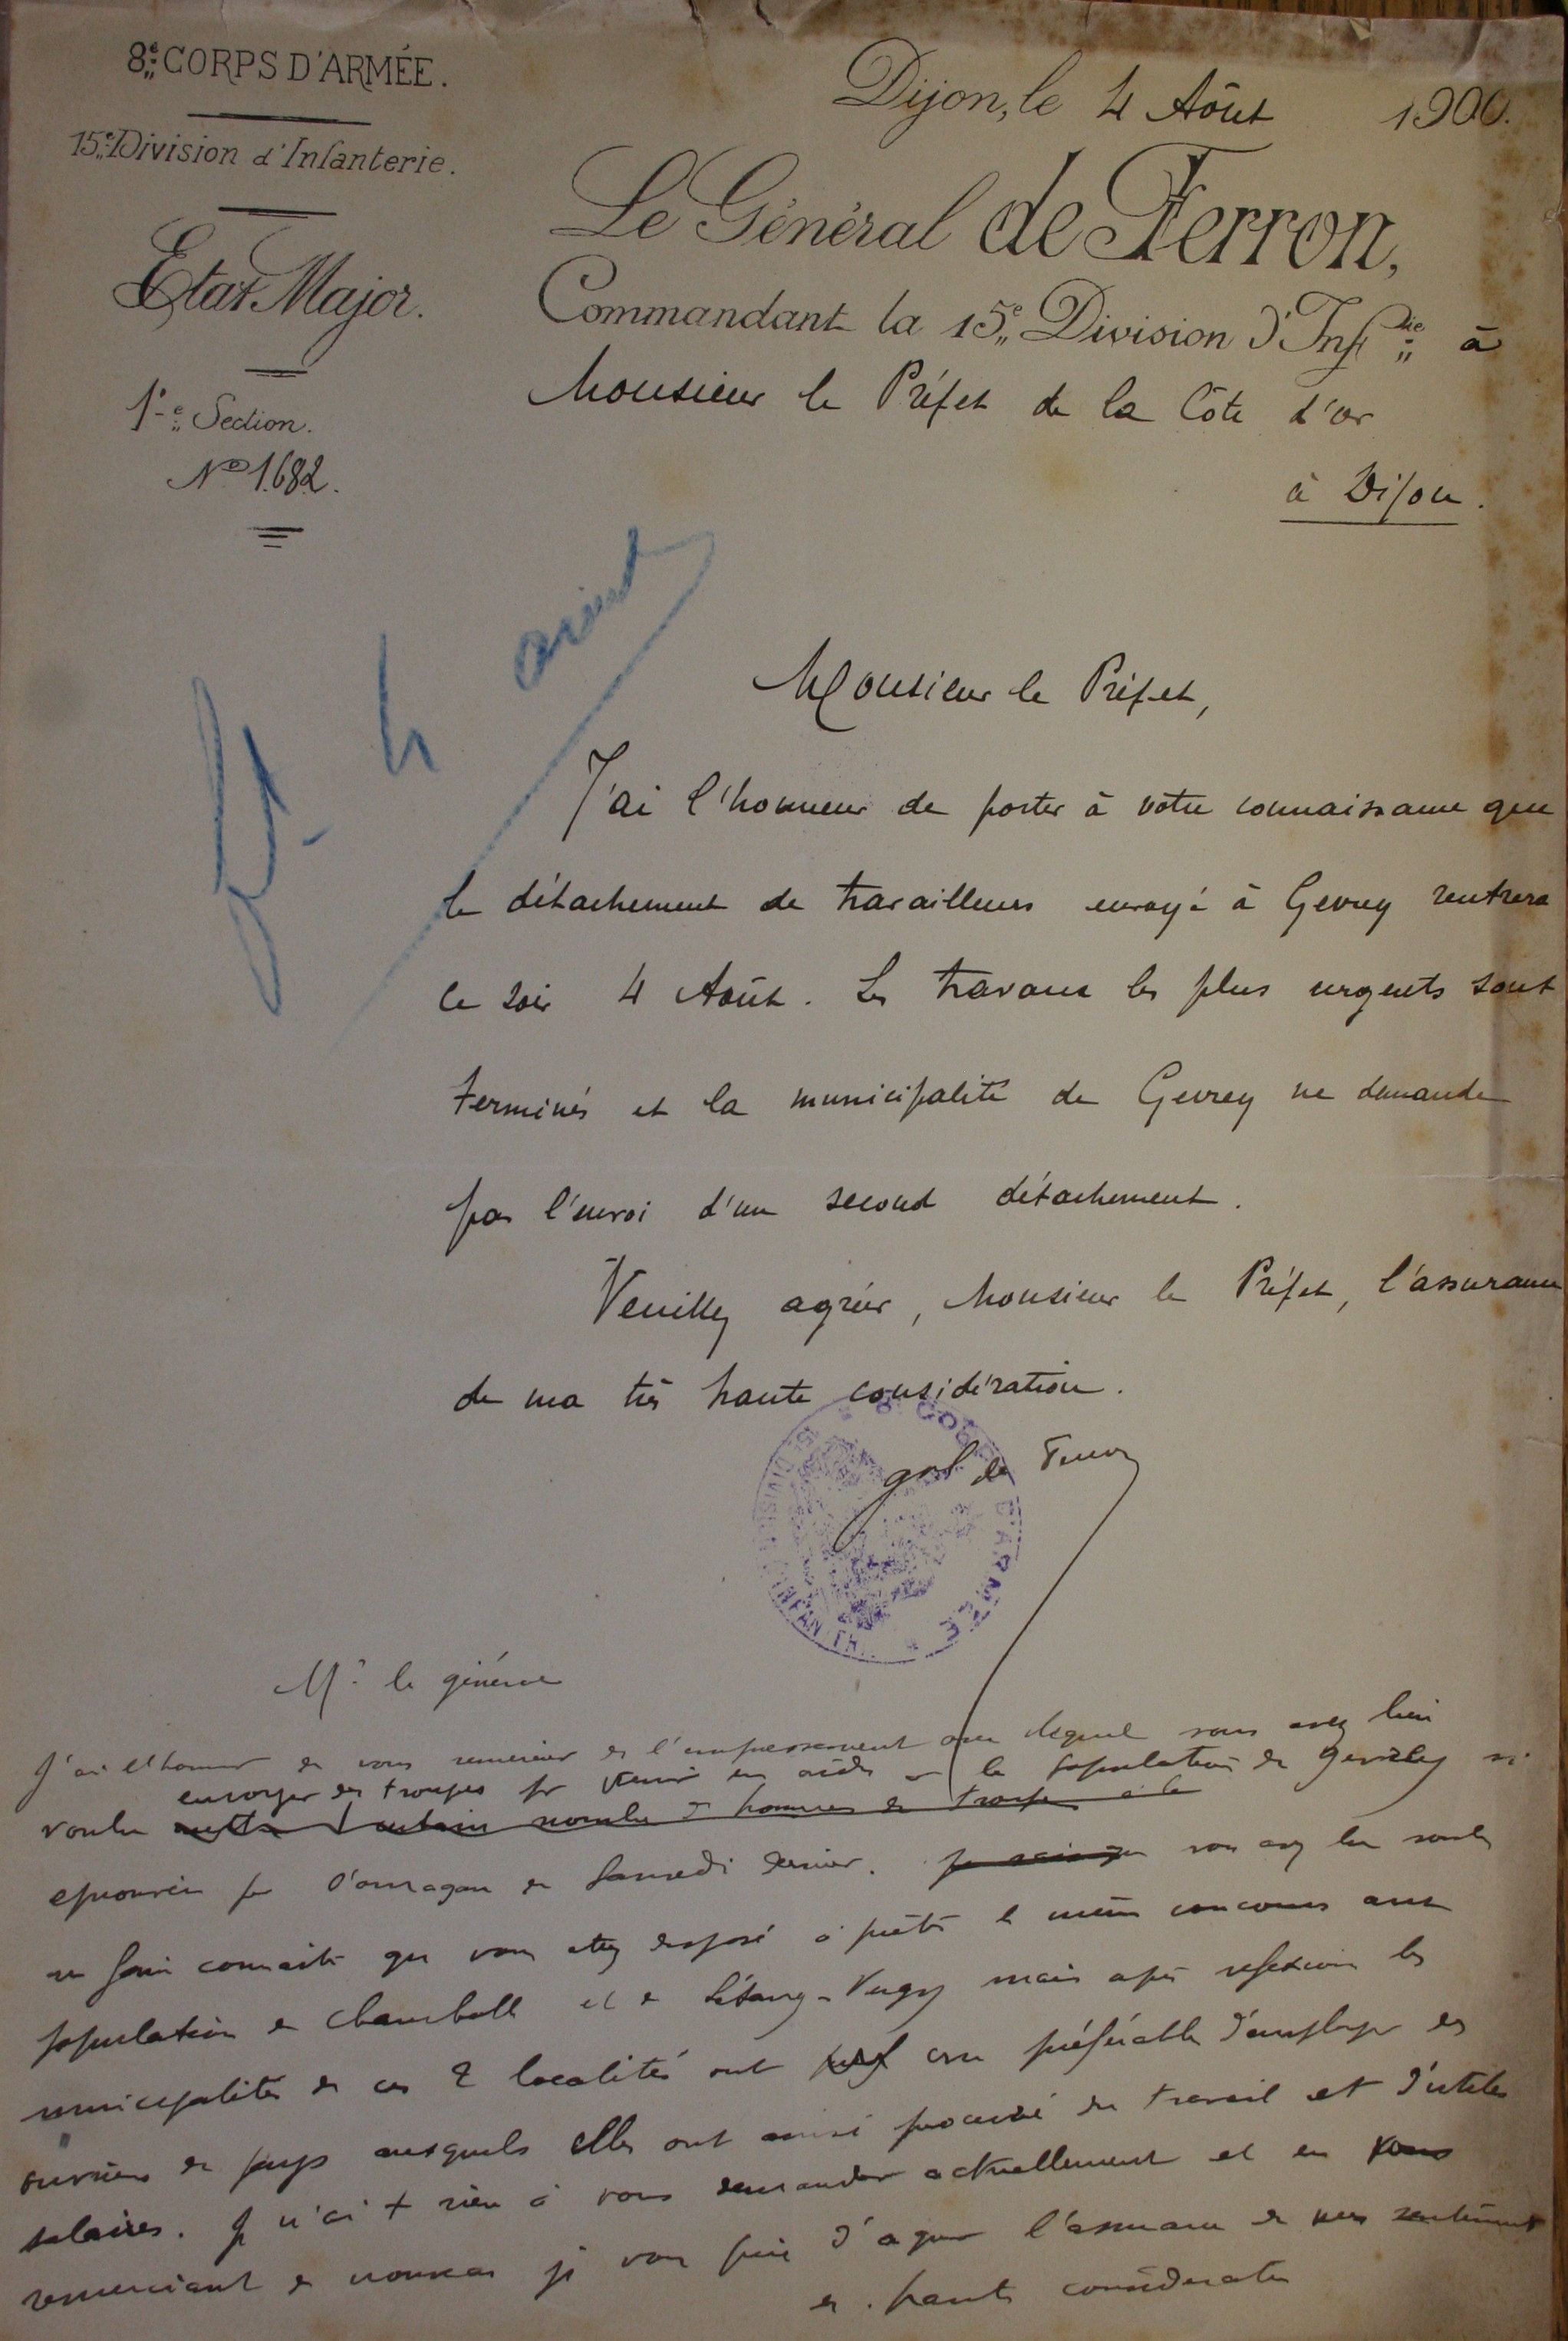 8e CORPS D'ARMÉE.
15e Division d'Infanterie.
Etat Major.
1re Section.
No 1682.
Dijon, le 4 Août 1900.
Le Général de Ferron,
Commandant la 15e Division d'Inftie à
Monsieur le Préfet de la Côte d'or
à Dijon.
4 août
Monsieur le Préfet,
J'ai l'honneur de porter à votre connaissance que
le détachement de travailleurs envoyé à Gevrey rentrera
ce soir 4 Août. Les travaux les plus urgents sont
terminés et la municipalité de Gevrey ne demande
pas l'envoi d'un second détachement.
Veuillez agréer, Monsieur le Préfet, l'assurance
de ma très haute considération.
gal de Ferron
8e CORPS D'ARMÉE
15e DIVISION D'INFANTRIE
Mr le général
J'ai l'honneur de vous remercier de l'empressement avec lequel vous avez bien
envoyer des troupes pr venir en aide à la population de Gevrey si
voulu mettre 1 certain nombre d'hommes de troupe à la
éprouvée par l'ouragan de samedi dernier. vous avez bien voulu
me faire connaître que vous étiez disposé à prêter le même concours aux
population de Chambolle et de L'étang-Vergy mais après réflexion les
municipalités de ces 2 localités ont cru préférable d'employer des
ouvriers du pays auxquels elles ont ainsi procuré du travail et d'utiles
salaires. Je n'ai + rien à vous demander actuellement et en vous
remerciant de nouveau je vous prie d'agréer l'assurance de mes sentiments
de haute considération